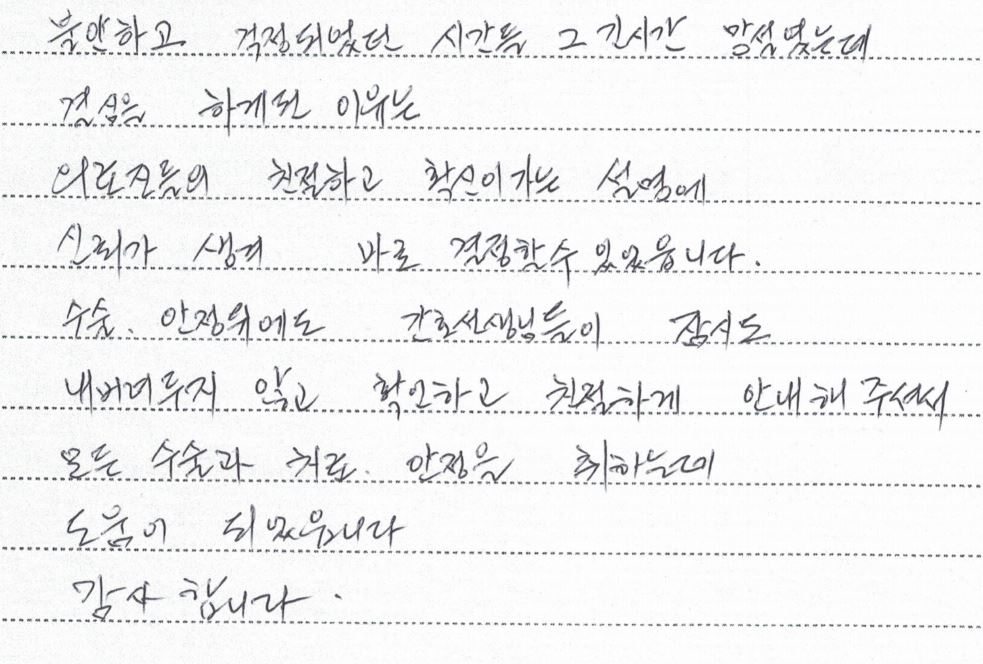 불안하고 걱정되었던 시간들 그 긴시간 망설였는데
결심을 하게된 이유는
의료진들의 친절하고 확신이가는 설명에
신뢰가 생겨 바로 결정할수 있었읍니다.
수술. 안정위에도 간호선생님들이 잠시도
내버려두지 않고 확인하고 친절하게 안내해 주셔서
모든 수술과 치료. 안정을 취하는데
도움이 되었읍니다
감사 합니다.